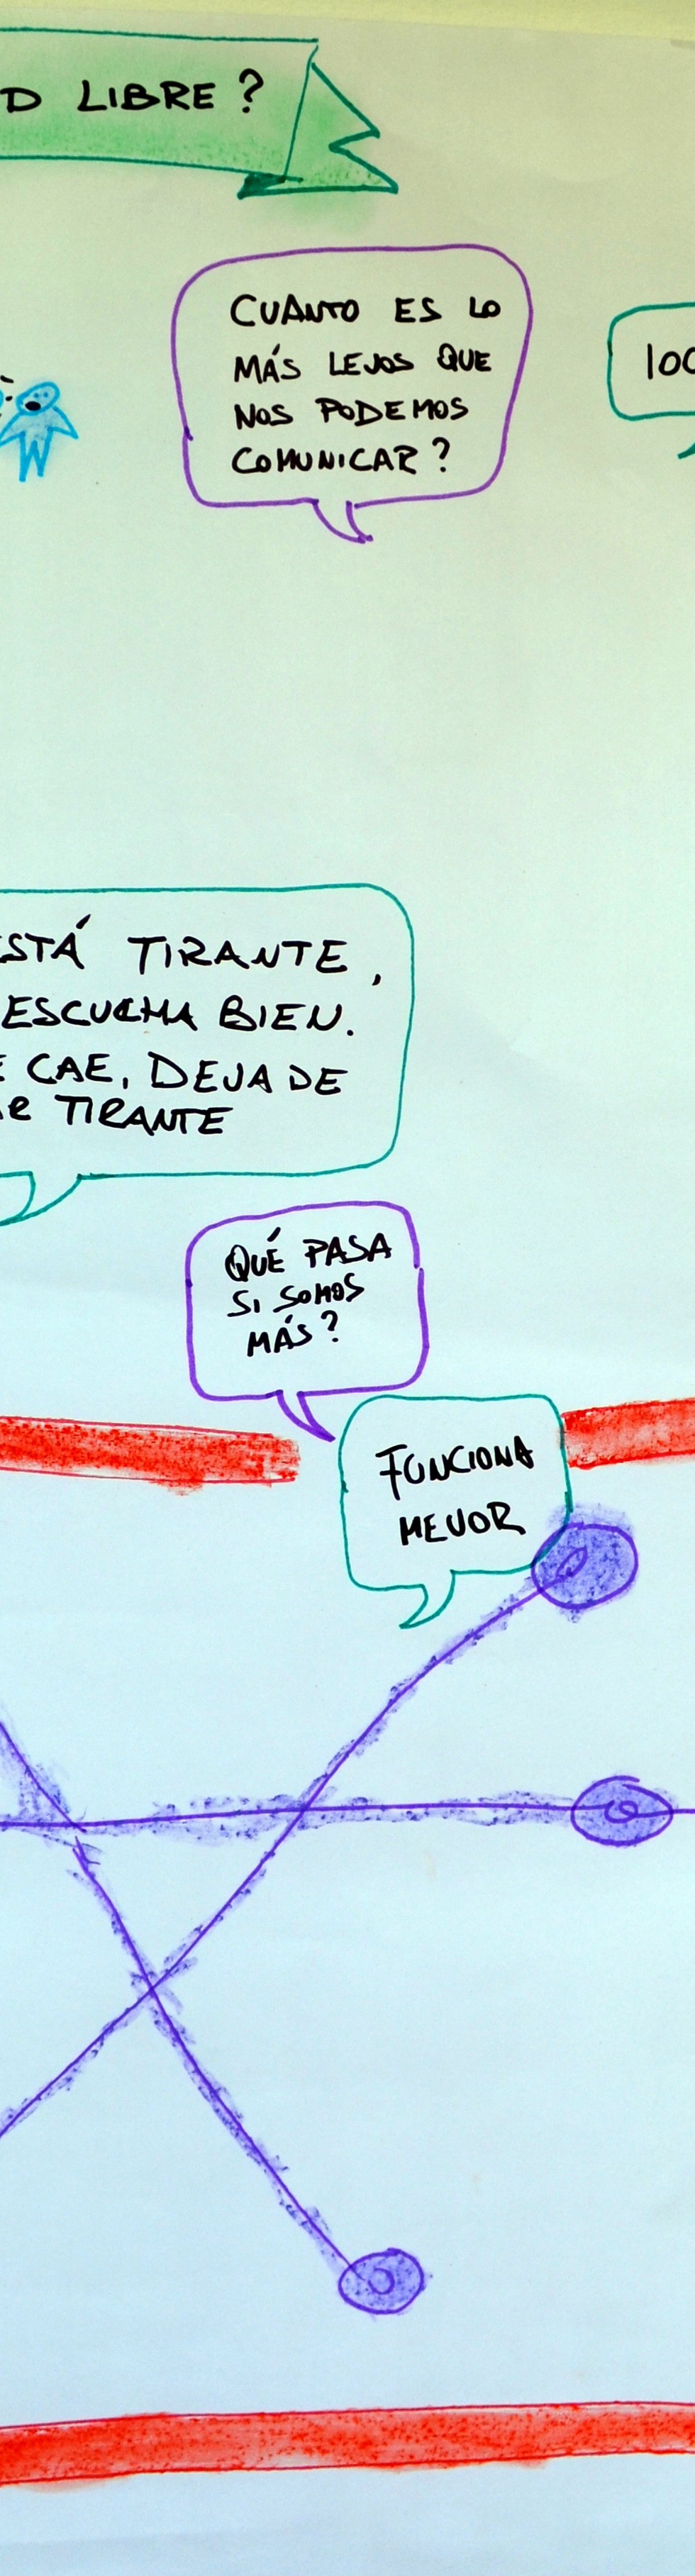 D LIBRE?
CUANTO ES LO
MÁS LEJOS QUE
NOS PODEMOS
COMUNICAR?
100
STÁ TIRANTE,
ESCUCHA BIEN.
E CAE, DEJA DE
AR TIRANTE
QUÉ PASA
SI SOMOS
MÁS?
FUNCIONA
MEJOR